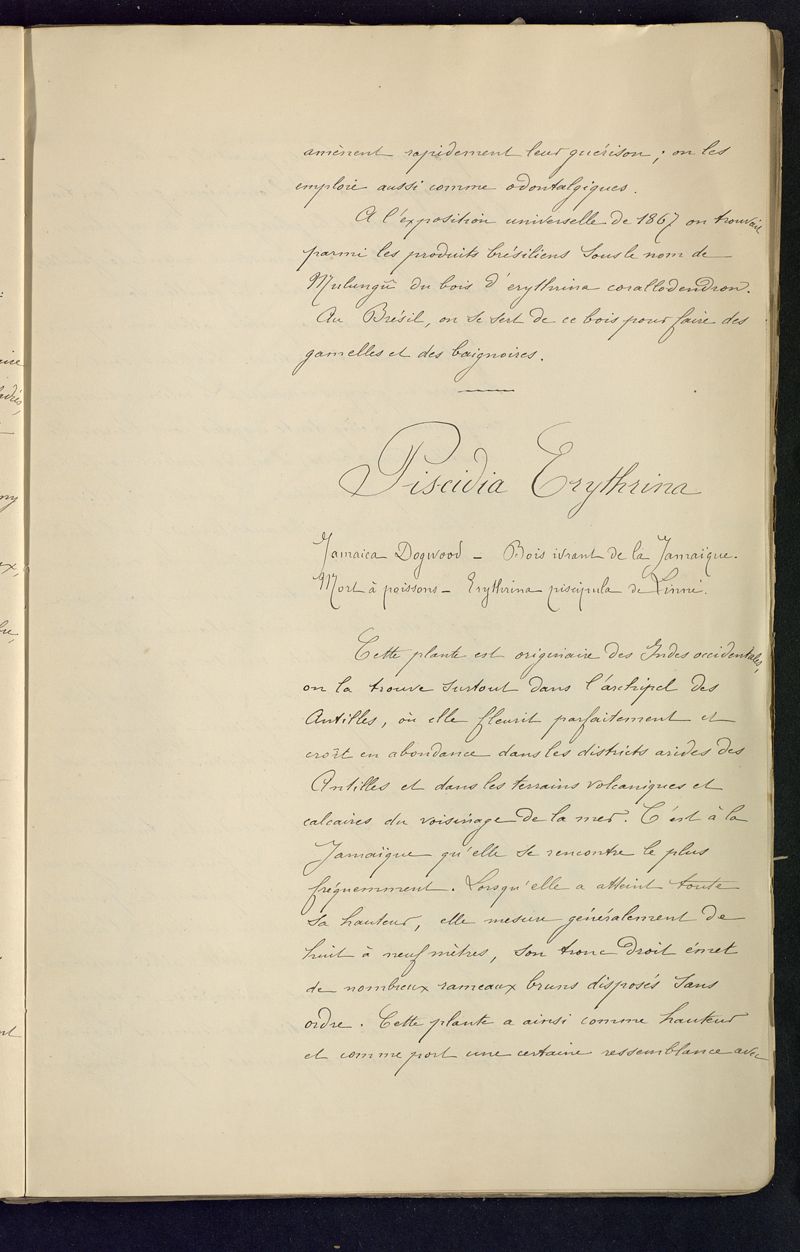 amènent rapidement leur guérison ; on les
emploie aussi comme odontalgiques.
A l'exposition universelle de 1867 on trouvait
parmi les produits brésiliens sous le nom de
Mulungû du bois d'erythrina corallodendron.
Au Brésil, on se sert de ce bois pour faire des
gamelles et des baignoires.
Piscidia Erythrina
Jamaica Dogwood - Bois ivrant de la Jamaïque.
Mort à poissons - Erythrina piscipula de Linné.
Cette plante est originaire des Indes occidentales,
on la trouve surtout dans l'archipel des
Antilles, où elle fleurit parfaitement et
croît en abondance dans les districts arides des
Antilles et dans les terrains volcaniques et
calcaires du voisinage de la mer. C'est à la
Jamaïque qu'elle se rencontre le plus
fréquemment. Lorsqu'elle a atteint toute
sa hauteur, elle mesure généralement de
huit à neuf mètres, son tronc droit émet
de nombreux rameaux bruns disposés sans
ordre. Cette plante a ainsi comme hauteur
et comme port une certaine ressemblance avec